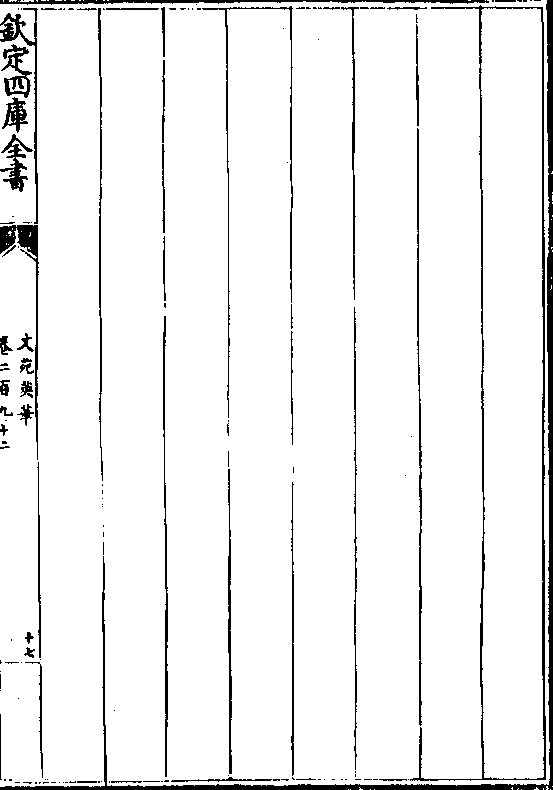 欽定四庫全書
文苑英華
卷二百九十二
十七